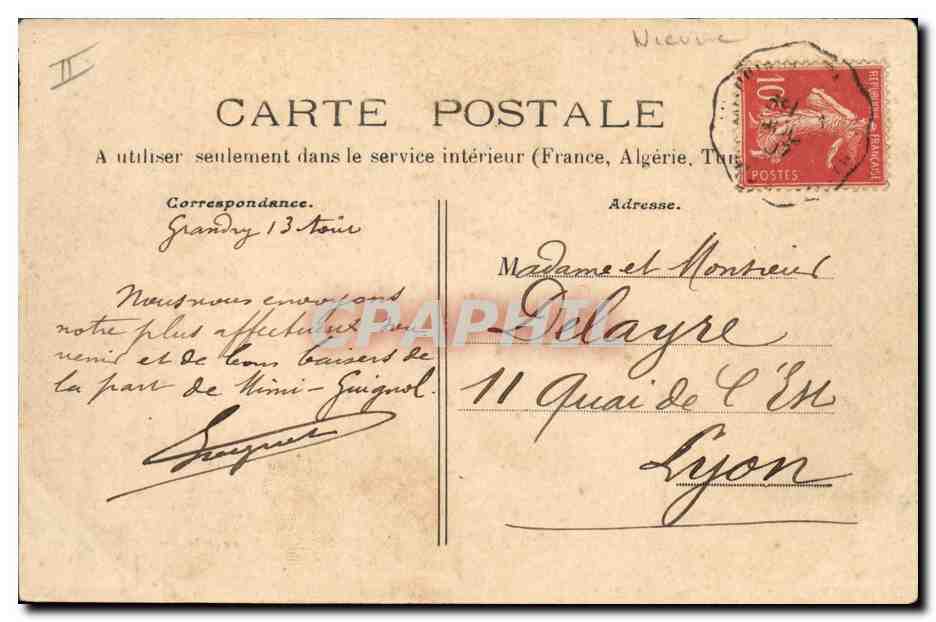 II
Nievre
CARTE POSTALE
A utiliser seulement dans le service intérieur (France, Algérie, Tun
RÉPUBLIQUE FRANÇAISE
10
POSTES
Correspondance.
Grandry 13 Août
Nous vous envoyons
notre plus affectueux sou
venir et de bons baisers de
la part de Mimi-Guignol.
Adresse.
Madame et Monsieur
Delayre
11 Quai de l'Est
Lyon
CPAPHIL